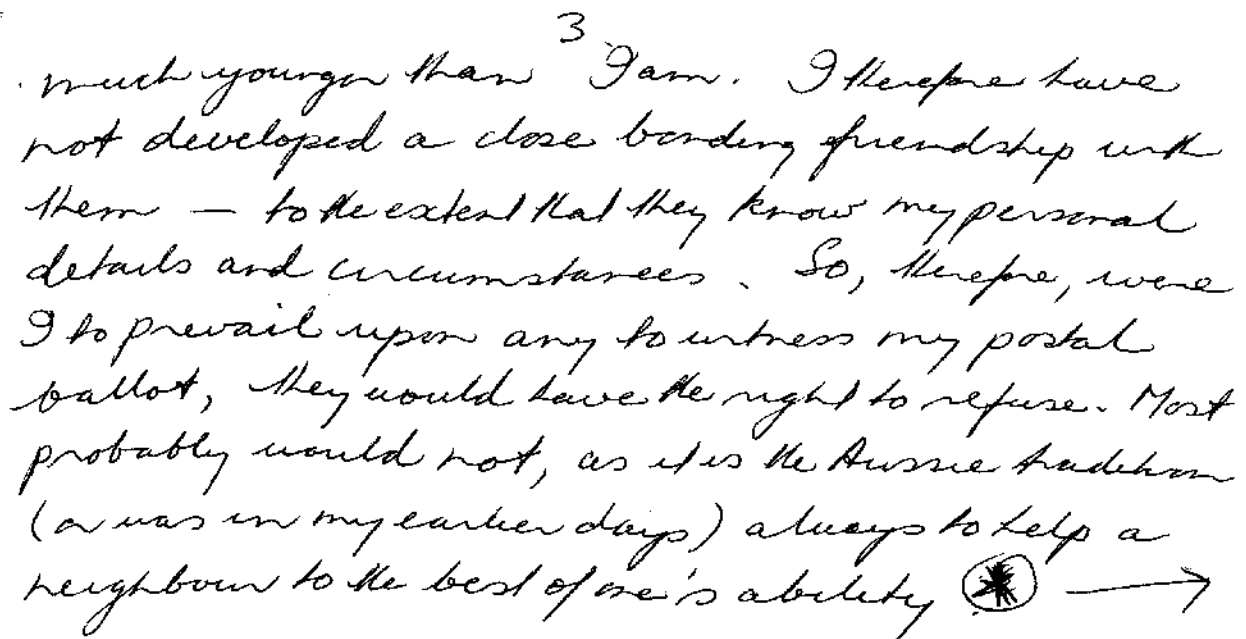 3
much younger than I am. I therefore have
not developed a close bonding friendship with
them — to the extent that they know my personal
details and circumstances. So, therefore, were
I to prevail upon any to witness my postal
ballot, they would have the right to refuse. Most
probably would not, as it is the Aussie tradition
(or was in my earlier days) always to help a
neighbour to the best of one's ability ⊛ →